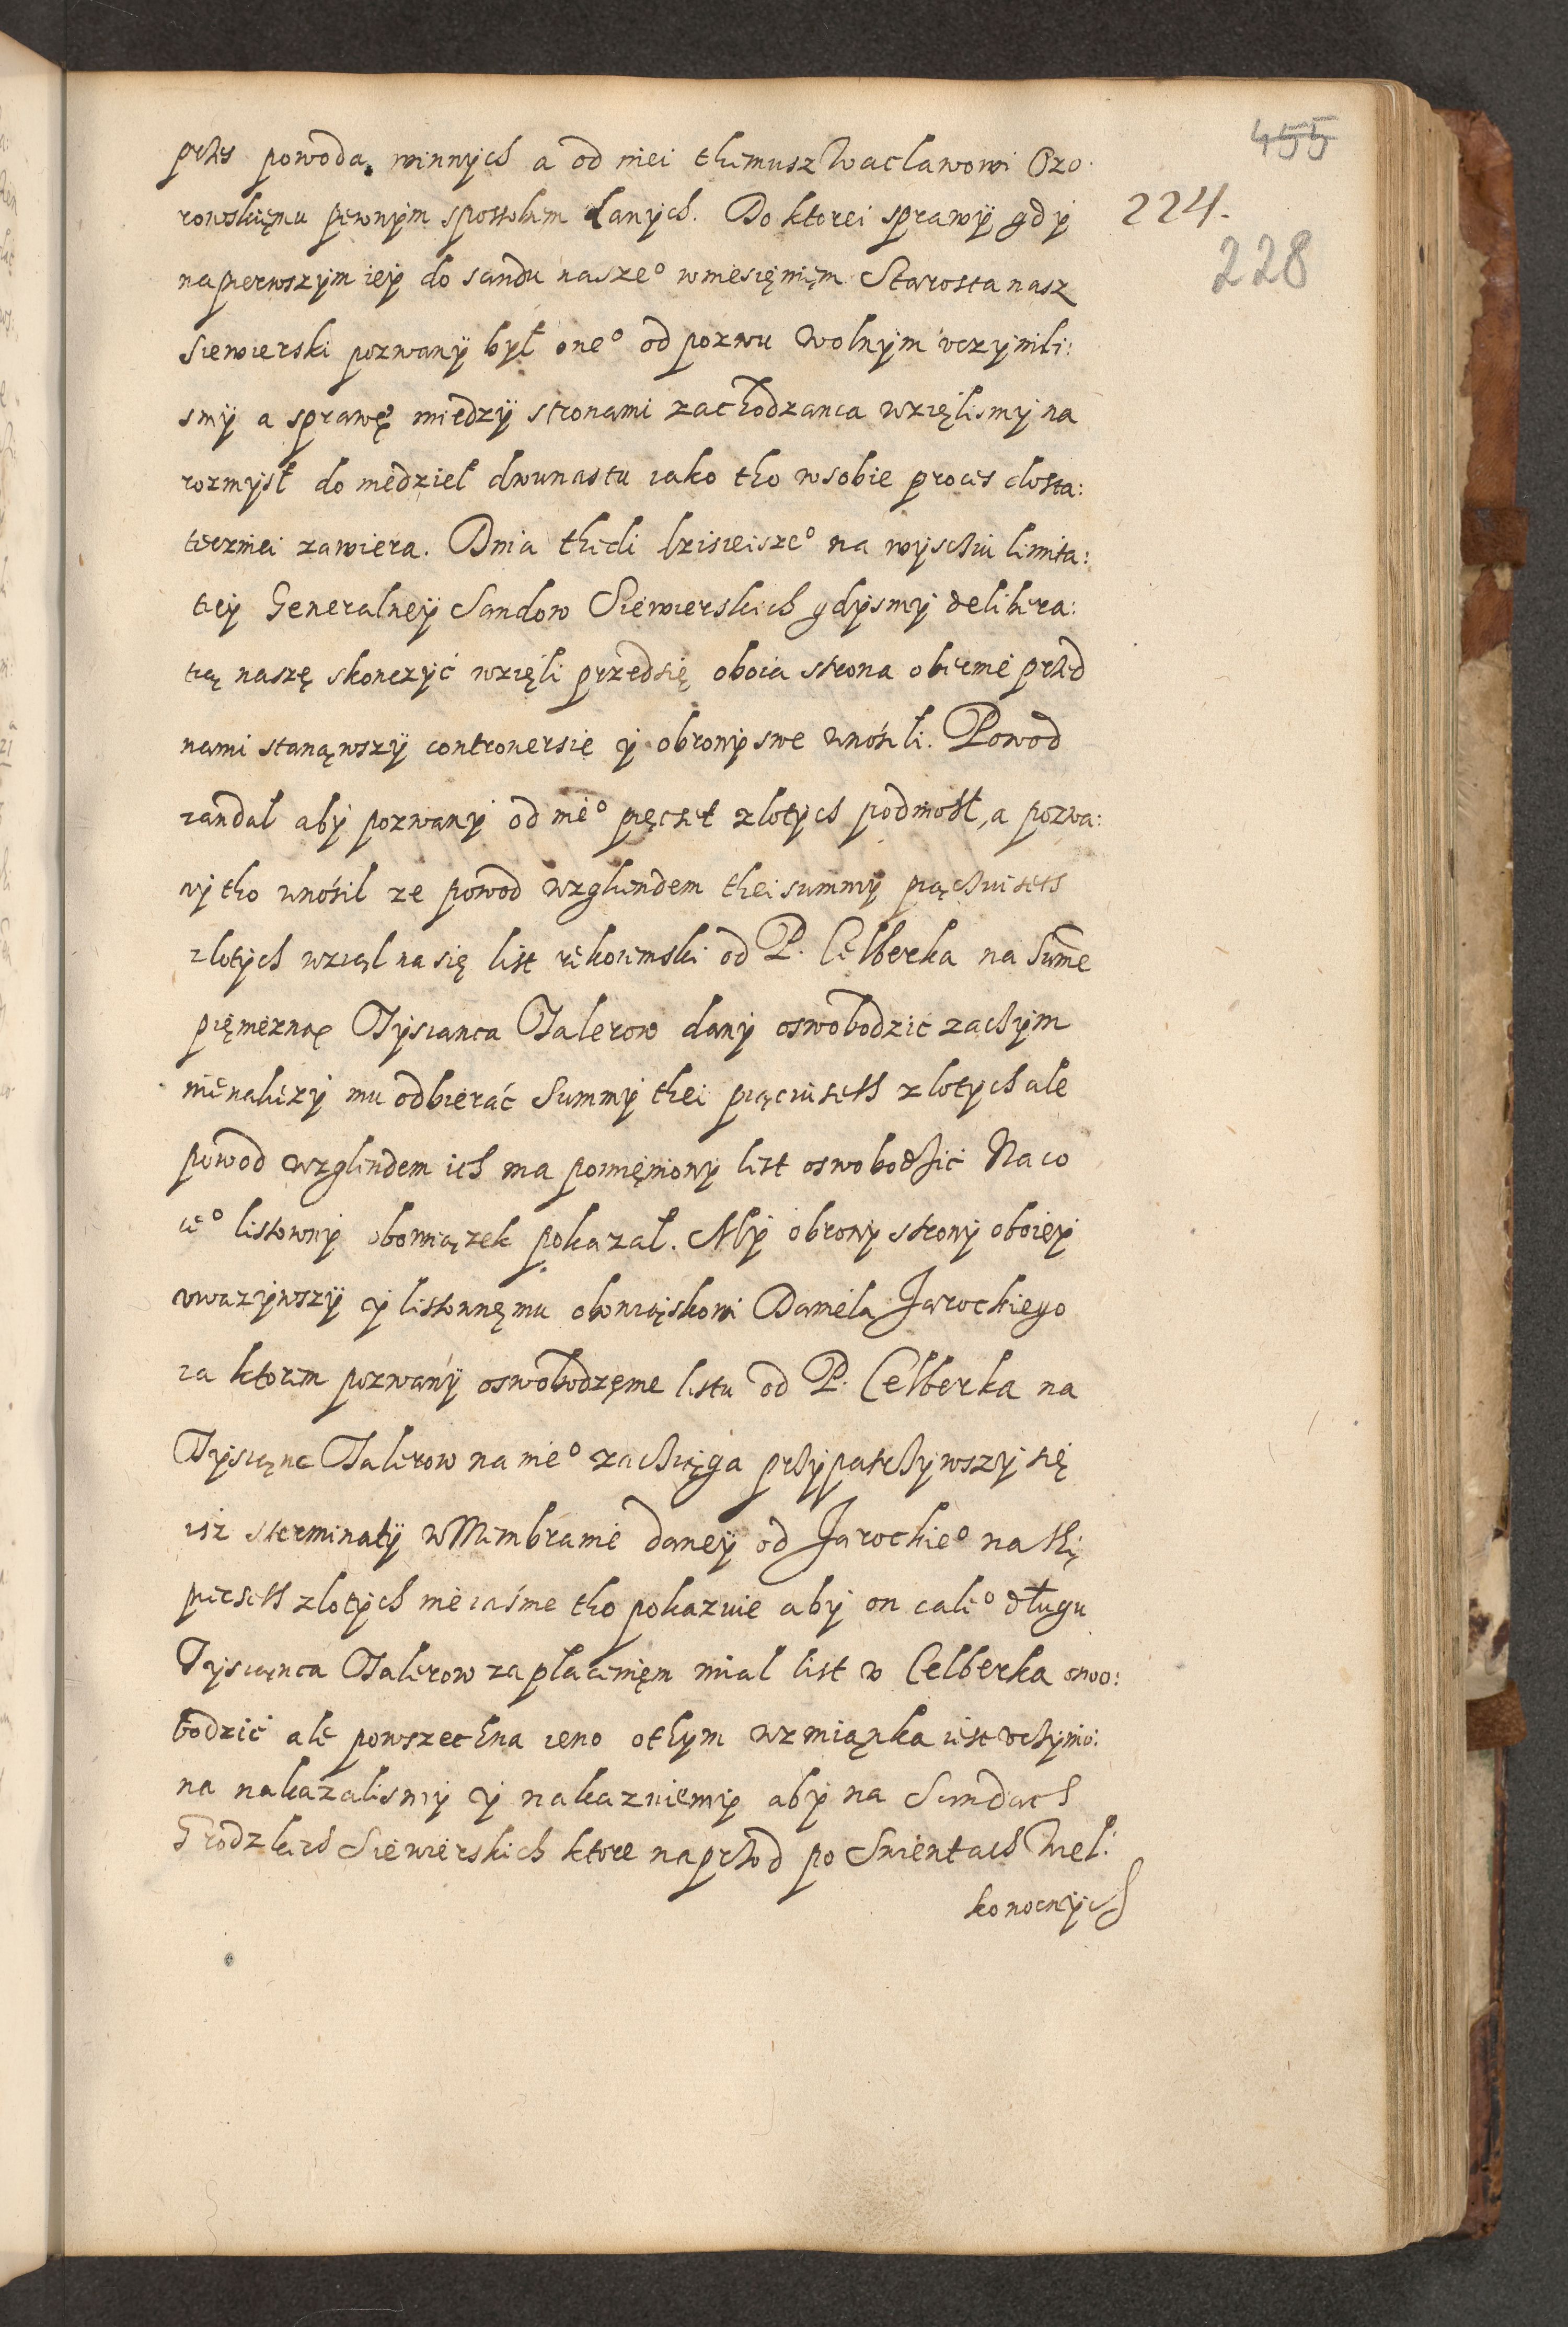 455
224.
228
przes powoda winnych a od niei themusz Waclawowi Ozo:
rowskięmu pewnym sposobem danych. Do ktorei sprawÿ gdÿ
na pierwszym ieÿ do sandu nasze° wniesięnięm Starosta nasz
Siewierski pozwanÿ był one° od pozwu wolnÿm vczynili:
smÿ a sprawę miedzÿ stronami zachodzanca wzięlismÿ na
rozmÿsł do niedziel dwunastu iako tho w sobie proces dosta:
tecznei zawiera. Dnia thedi dzisieisze° na wÿsciu limita:
tieÿ Generalneÿ Sandow Siewierskich gdÿsmÿ delibera:
tią naszę skonczÿć wzięli przedsię oboia strona obecnie przed
nami stanąwszÿ controuersie ÿ obronÿ swe wnośili. Powod
zandal abÿ pozwanÿ od nie° pięcset zlotÿch podniosł, a pozwa:
nÿ tho wnośil ze powod wzglendem thei summÿ piąchi seth
zlotÿch wziąl na się list rekoiemski od P. Celberka na Sume
pięnieżną Tÿsianca Talerow danÿ oswobodzić zachÿm
nienalezÿ mu odbierać Summÿ thei piąciu seth zlotÿch ale
powod wzglendem ich ma pomięnionÿ list oswobodzić Na co
ie° listownÿ obowiązek pokazał. Mÿ obronÿ stronÿ oboieÿ
vwazÿwszÿ ÿ listownęmu obowiąskowi Daniela Jarockiego
za ktorem pozwanÿ oswobodzęnie listu od P. Celberka na
Tÿsiąnc Talerow na nie° zachięga przÿpatrzÿwszÿ się
isz sterminatÿ w Membranie daneÿ od Jarockie° na thę
piecseth zlotÿch nie iaśnie tho pokazuie abÿ on cale° długu
Tÿsianca Talerow zaplacenięm mial list v Celberka oswo:
bodzić ale powszechna ieno o thÿm wzmiąnka iest vchÿnio:
na nakazalismÿ ÿ nakazuiemÿ abÿ na Sandach
Grodzkich Siewierskich ktore naprzod po Swientach Wiel:
konocnÿch